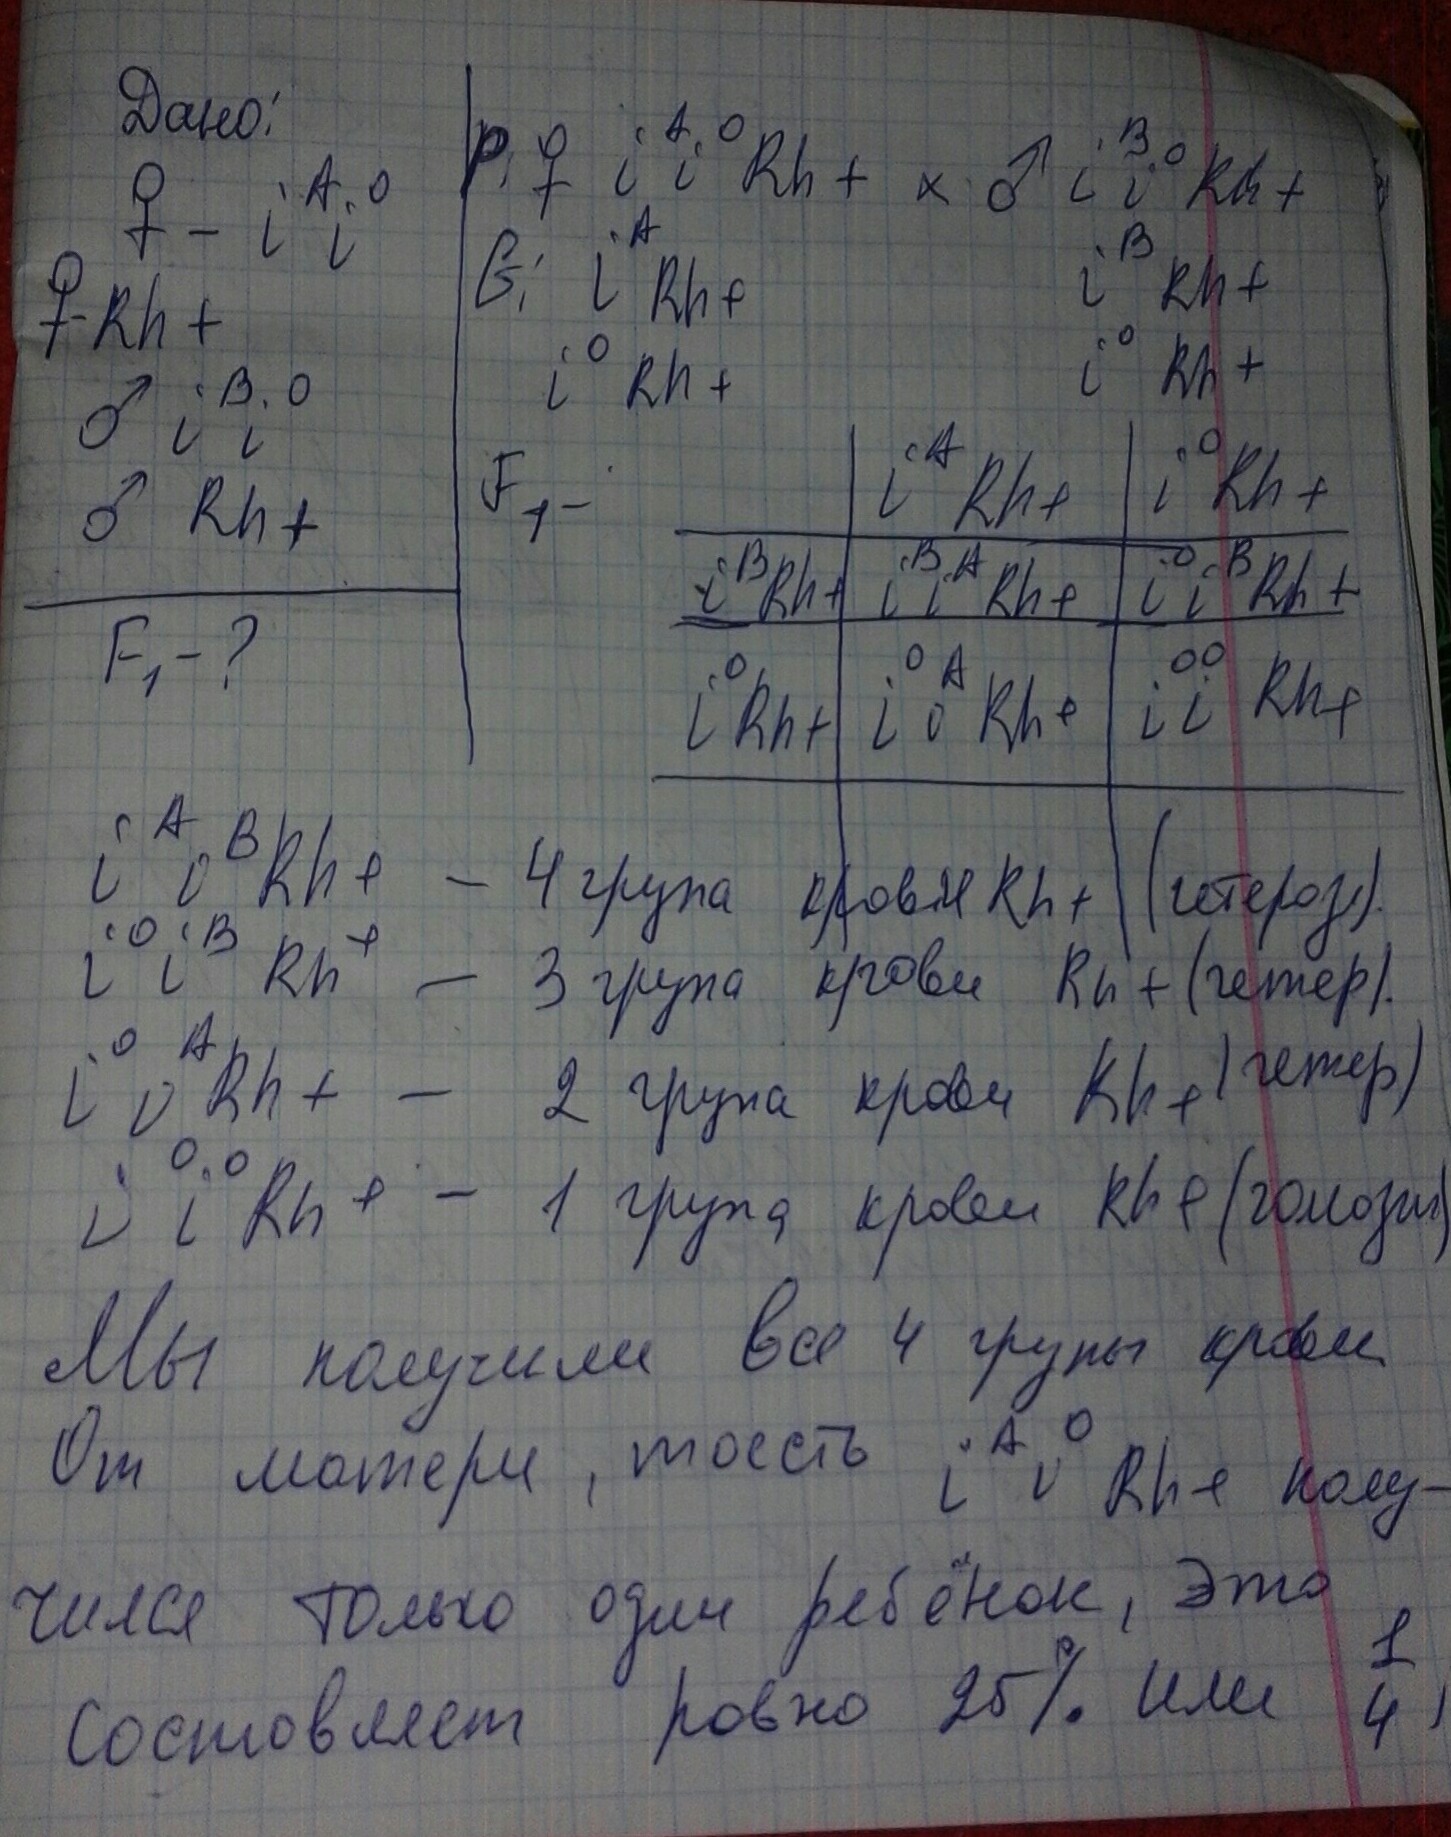 Дано:
♀ - i^A i^O
♀ Rh +
♂ i^B i^O
♂ Rh +
F₁ - ?
P: ♀ i^A i^O Rh + × ♂ i^B i^O Rh +
G: i^A Rh + i^B Rh +
i^O Rh + i^O Rh +
F₁ -
i^A Rh + i^O Rh +
i^B Rh + i^B i^A Rh + i^O i^B Rh +
i^O Rh + i^O i^A Rh + i^O i^O Rh +
i^A i^B Rh + - 4 група крови Rh + (гетероз).
i^O i^B Rh + - 3 група крови Rh + (гетер).
i^O i^A Rh + - 2 група крови Rh + (гетер)
i^O i^O Rh + - 1 група крови Rh + (гомозиг)
Мы получили все 4 групы крови
От матери, тоесть i^A i^O Rh + полу-
чился только один ребёнок, это
состовляет ровно 25% или 1/4